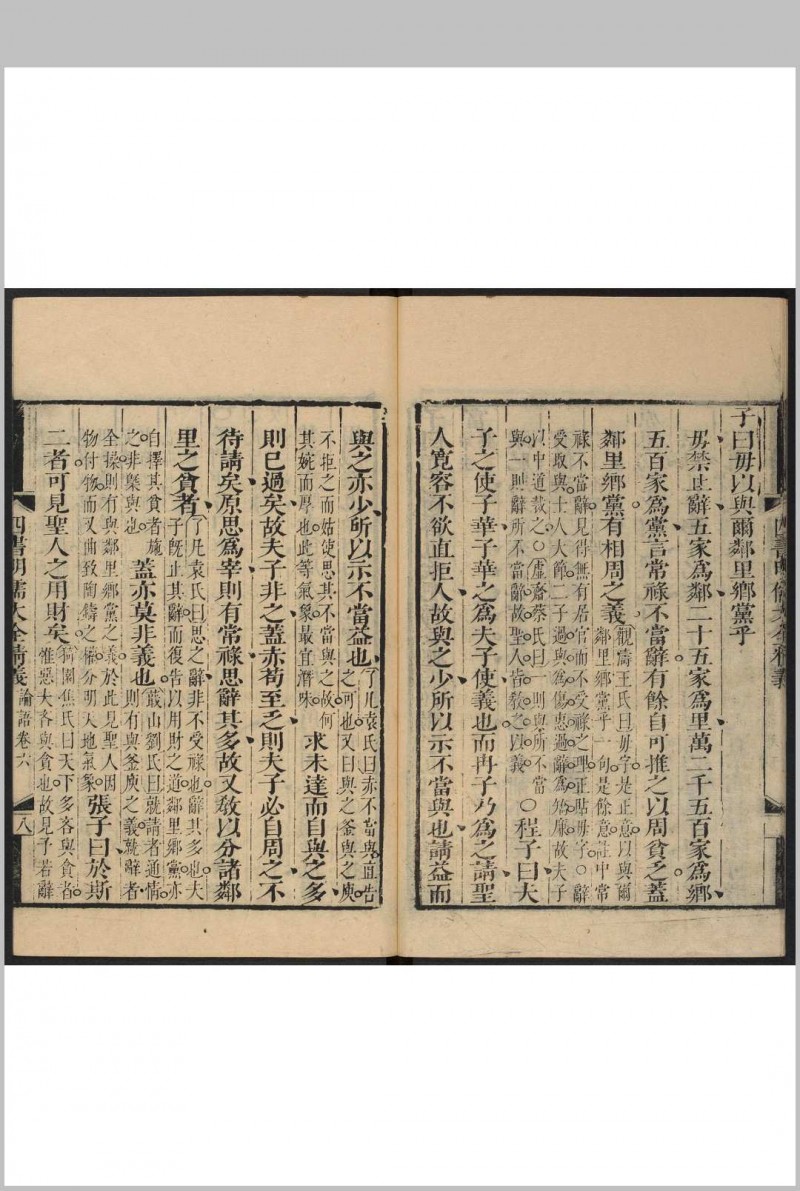 子曰毋以與爾鄰里鄉黨乎
毋禁止辭五家爲鄰二十五家爲里萬二千五百家爲鄉
五百家爲黨言常祿不當辭有餘自可推之以周貧乏蓋
鄰里鄉黨有相周之義觀濤王氏曰毋字是正意以與爾
鄰里鄉黨乎一句是餘意註中常
祿不當辭見得無有居官而不受祿之理正貼毋字○辭
受取與士人大節二子過與爲傷惠過辭爲矯廉故夫子
以中道裁之○虛齋蔡氏曰一則與所不當
與一則辭所不當辭故聖人皆敎之以義
○程子曰夫
子之使子華子華之爲夫子使義也而冉子乃爲之請聖
人寬容不欲直拒人故與之少所以示不當與也請益而
與之亦少所以示不當益也了凡袁氏曰赤不當與直告
之可也又曰與之釜與之庾
不拒之而姑使思其不當與之故何
其婉而厚也此等氣象最宜潛味
求未達而自與之多
則已過矣故夫子非之蓋赤苟至乏則夫子必自周之不
待請矣原思爲宰則有常祿思辭其多故又敎以分諸鄰
里之貧者了凡袁氏曰思之辭非不受祿也辭其多也夫
子旣止其辭而復告以用財之道鄰里鄉黨亦
自擇其貧者施
之非槩與也
蓋亦莫非義也蕺山劉氏曰就請者通情
則有與釜庾之義就辭者
全操則有與鄰里鄉黨之義於此見聖人因
物付物而又曲致陶鑄之權分明天地氣象
張子曰於斯
二者可見聖人之用財矣漪園焦氏曰天下多吝與貪者
惟惡夫吝與貪也故見予若辭
四書明儒大全精義 論語卷六 八